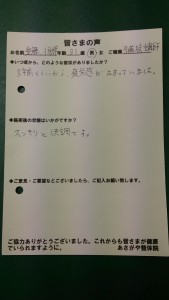 皆さまの声
お名前 年齢 (男)女 ご職業
●いつ頃から、どのような症状がありましたか?
疲労感がたまっていました。
●施術後の状態はいかがですか?
スッキリと快調です。
●ご意見・ご要望などございましたら、ご記入お願い致します。
ご協力ありがとうございました。これからも皆さまが健康
でいられますように。 あさがや整体院